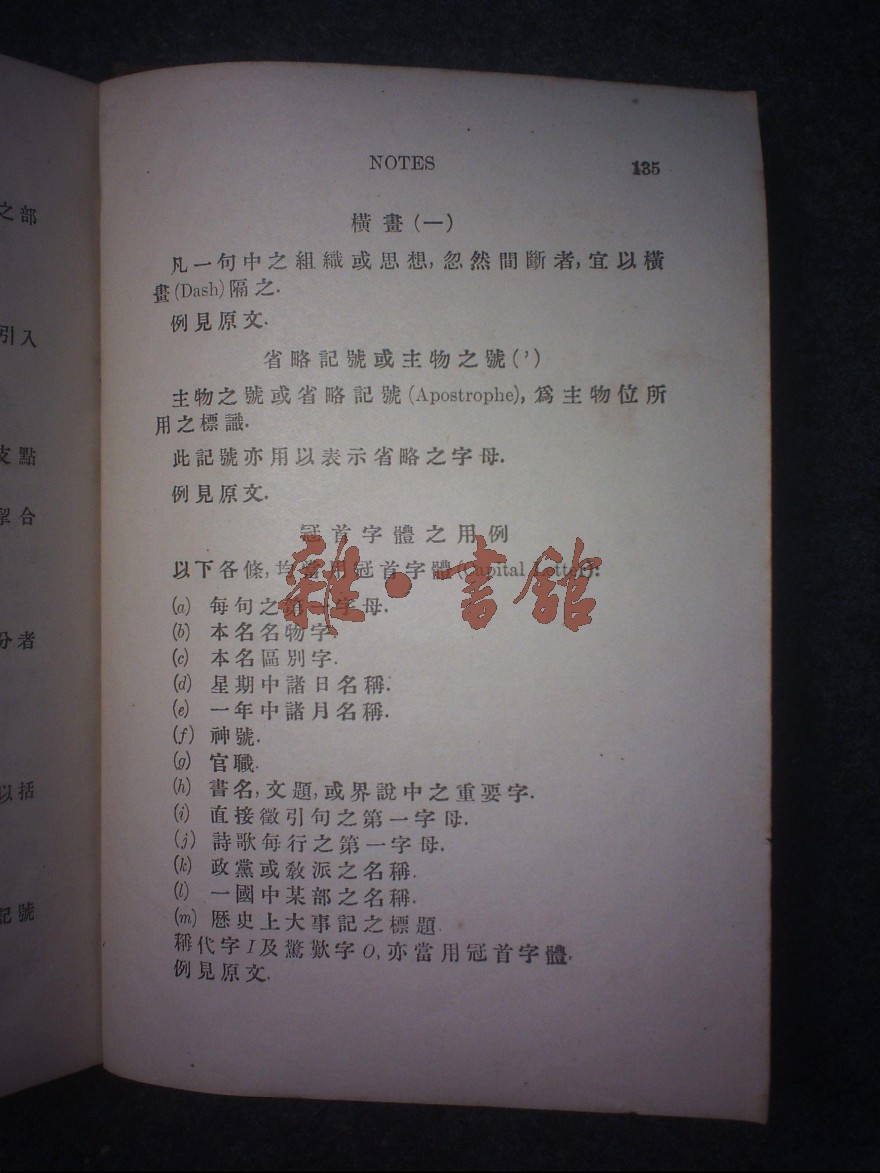 之部
引入
支點
合
分者
以括
記號
NOTES 135
橫畫(—)
凡一句中之組織或思想,忽然間斷者,宜以橫
畫(Dash)隔之.
例見原文.
省略記號或主物之號(’)
主物之號或省略記號(Apostrophe),爲主物位所
用之標識.
此記號亦用以表示省略之字母.
例見原文.
冠首字體之用例
以下各條,均當用冠首字體(Capital Letter):
(a) 每句之第一字母.
(b) 本名名物字.
(c) 本名區別字.
(d) 星期中諸日名稱.
(e) 一年中諸月名稱.
(f) 神號.
(g) 官職.
(h) 書名,文題,或界說中之重要字.
(i) 直接徵引句之第一字母.
(j) 詩歌每行之第一字母.
(k) 政黨或敎派之名稱.
(l) 一國中某部之名稱.
(m) 歷史上大事記之標題.
稱代字I及驚歎字O,亦當用冠首字體.
例見原文.
雜·書館